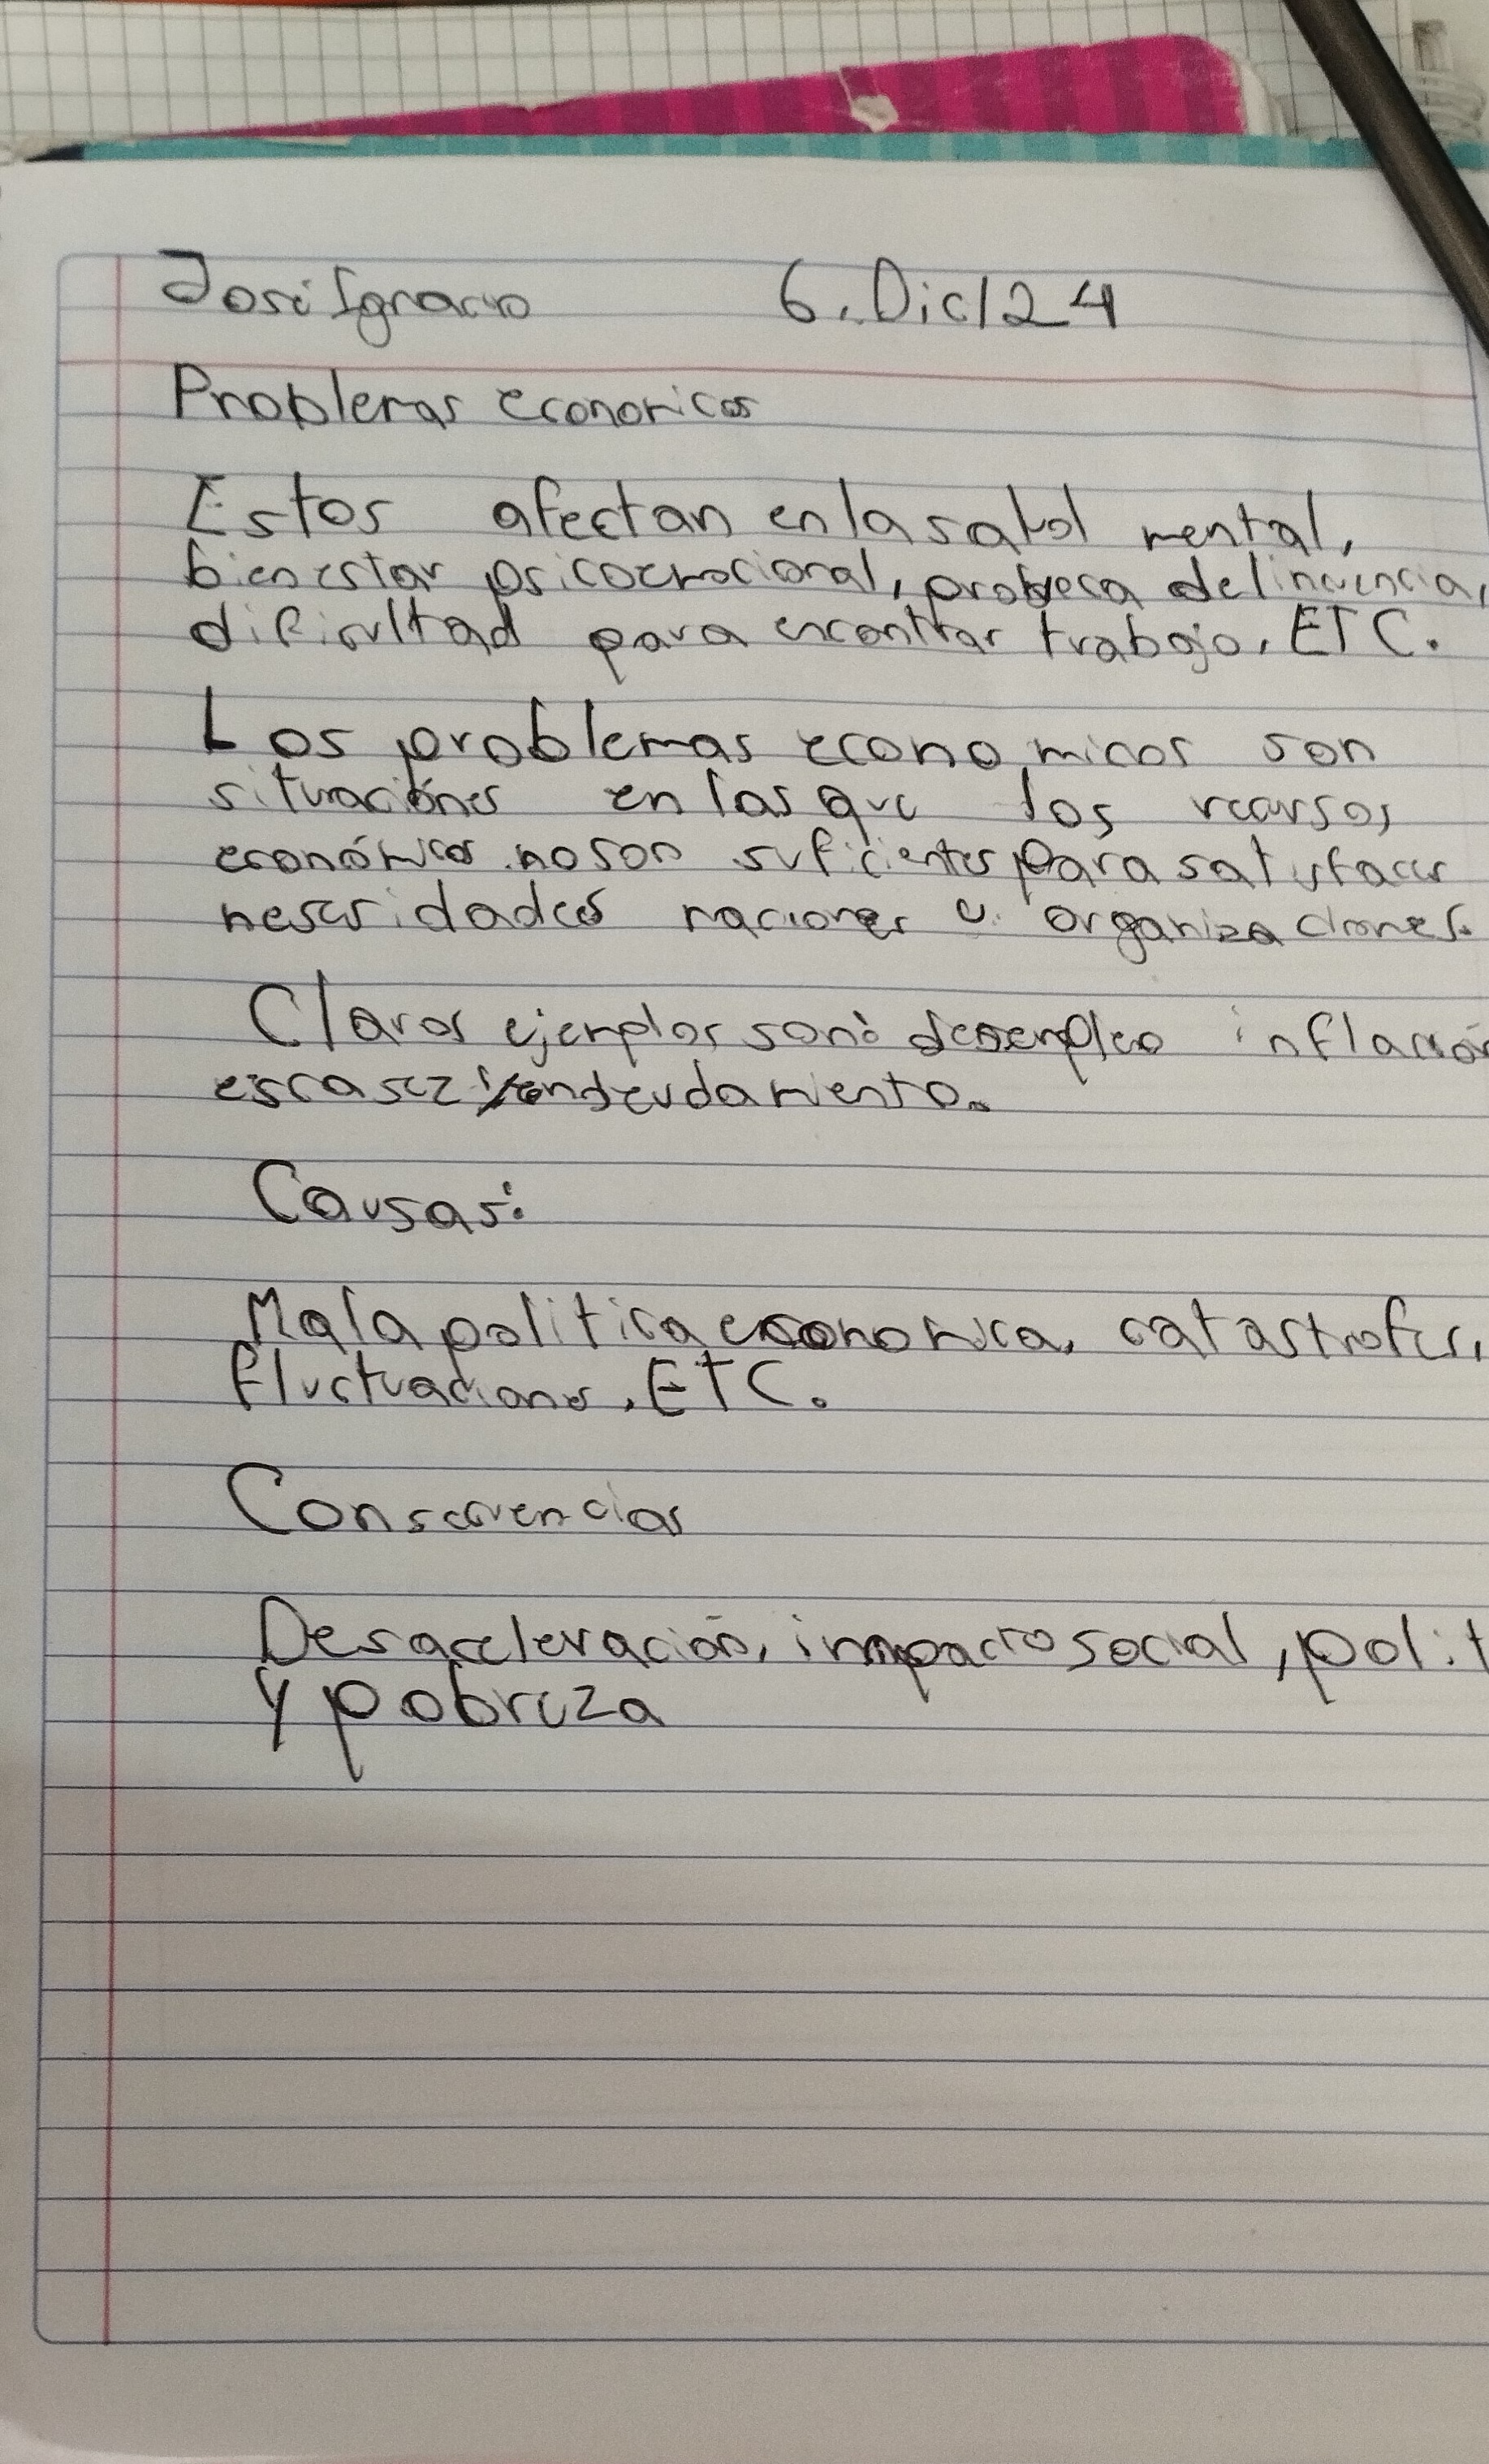 José Ignacio 6. Dic/24
Problemas economicos
Estos afectan en la salud mental,
bienestar psicoemocional, provoca delincuencia,
dificultad para encontrar trabajo, ETC.
Los problemas economicos son
situaciónes en las que los recursos
económicos no son suficientes para satisfacer
necesidades naciones u organizaciones.
Claros ejemplos son: desempleo inflación
escasez y endeudamiento.
Causas:
Mala politica economica, catastrofes,
fluctuaciones, ETC.
Consecuencias
Desaceleración, impacto social, polit
y pobreza